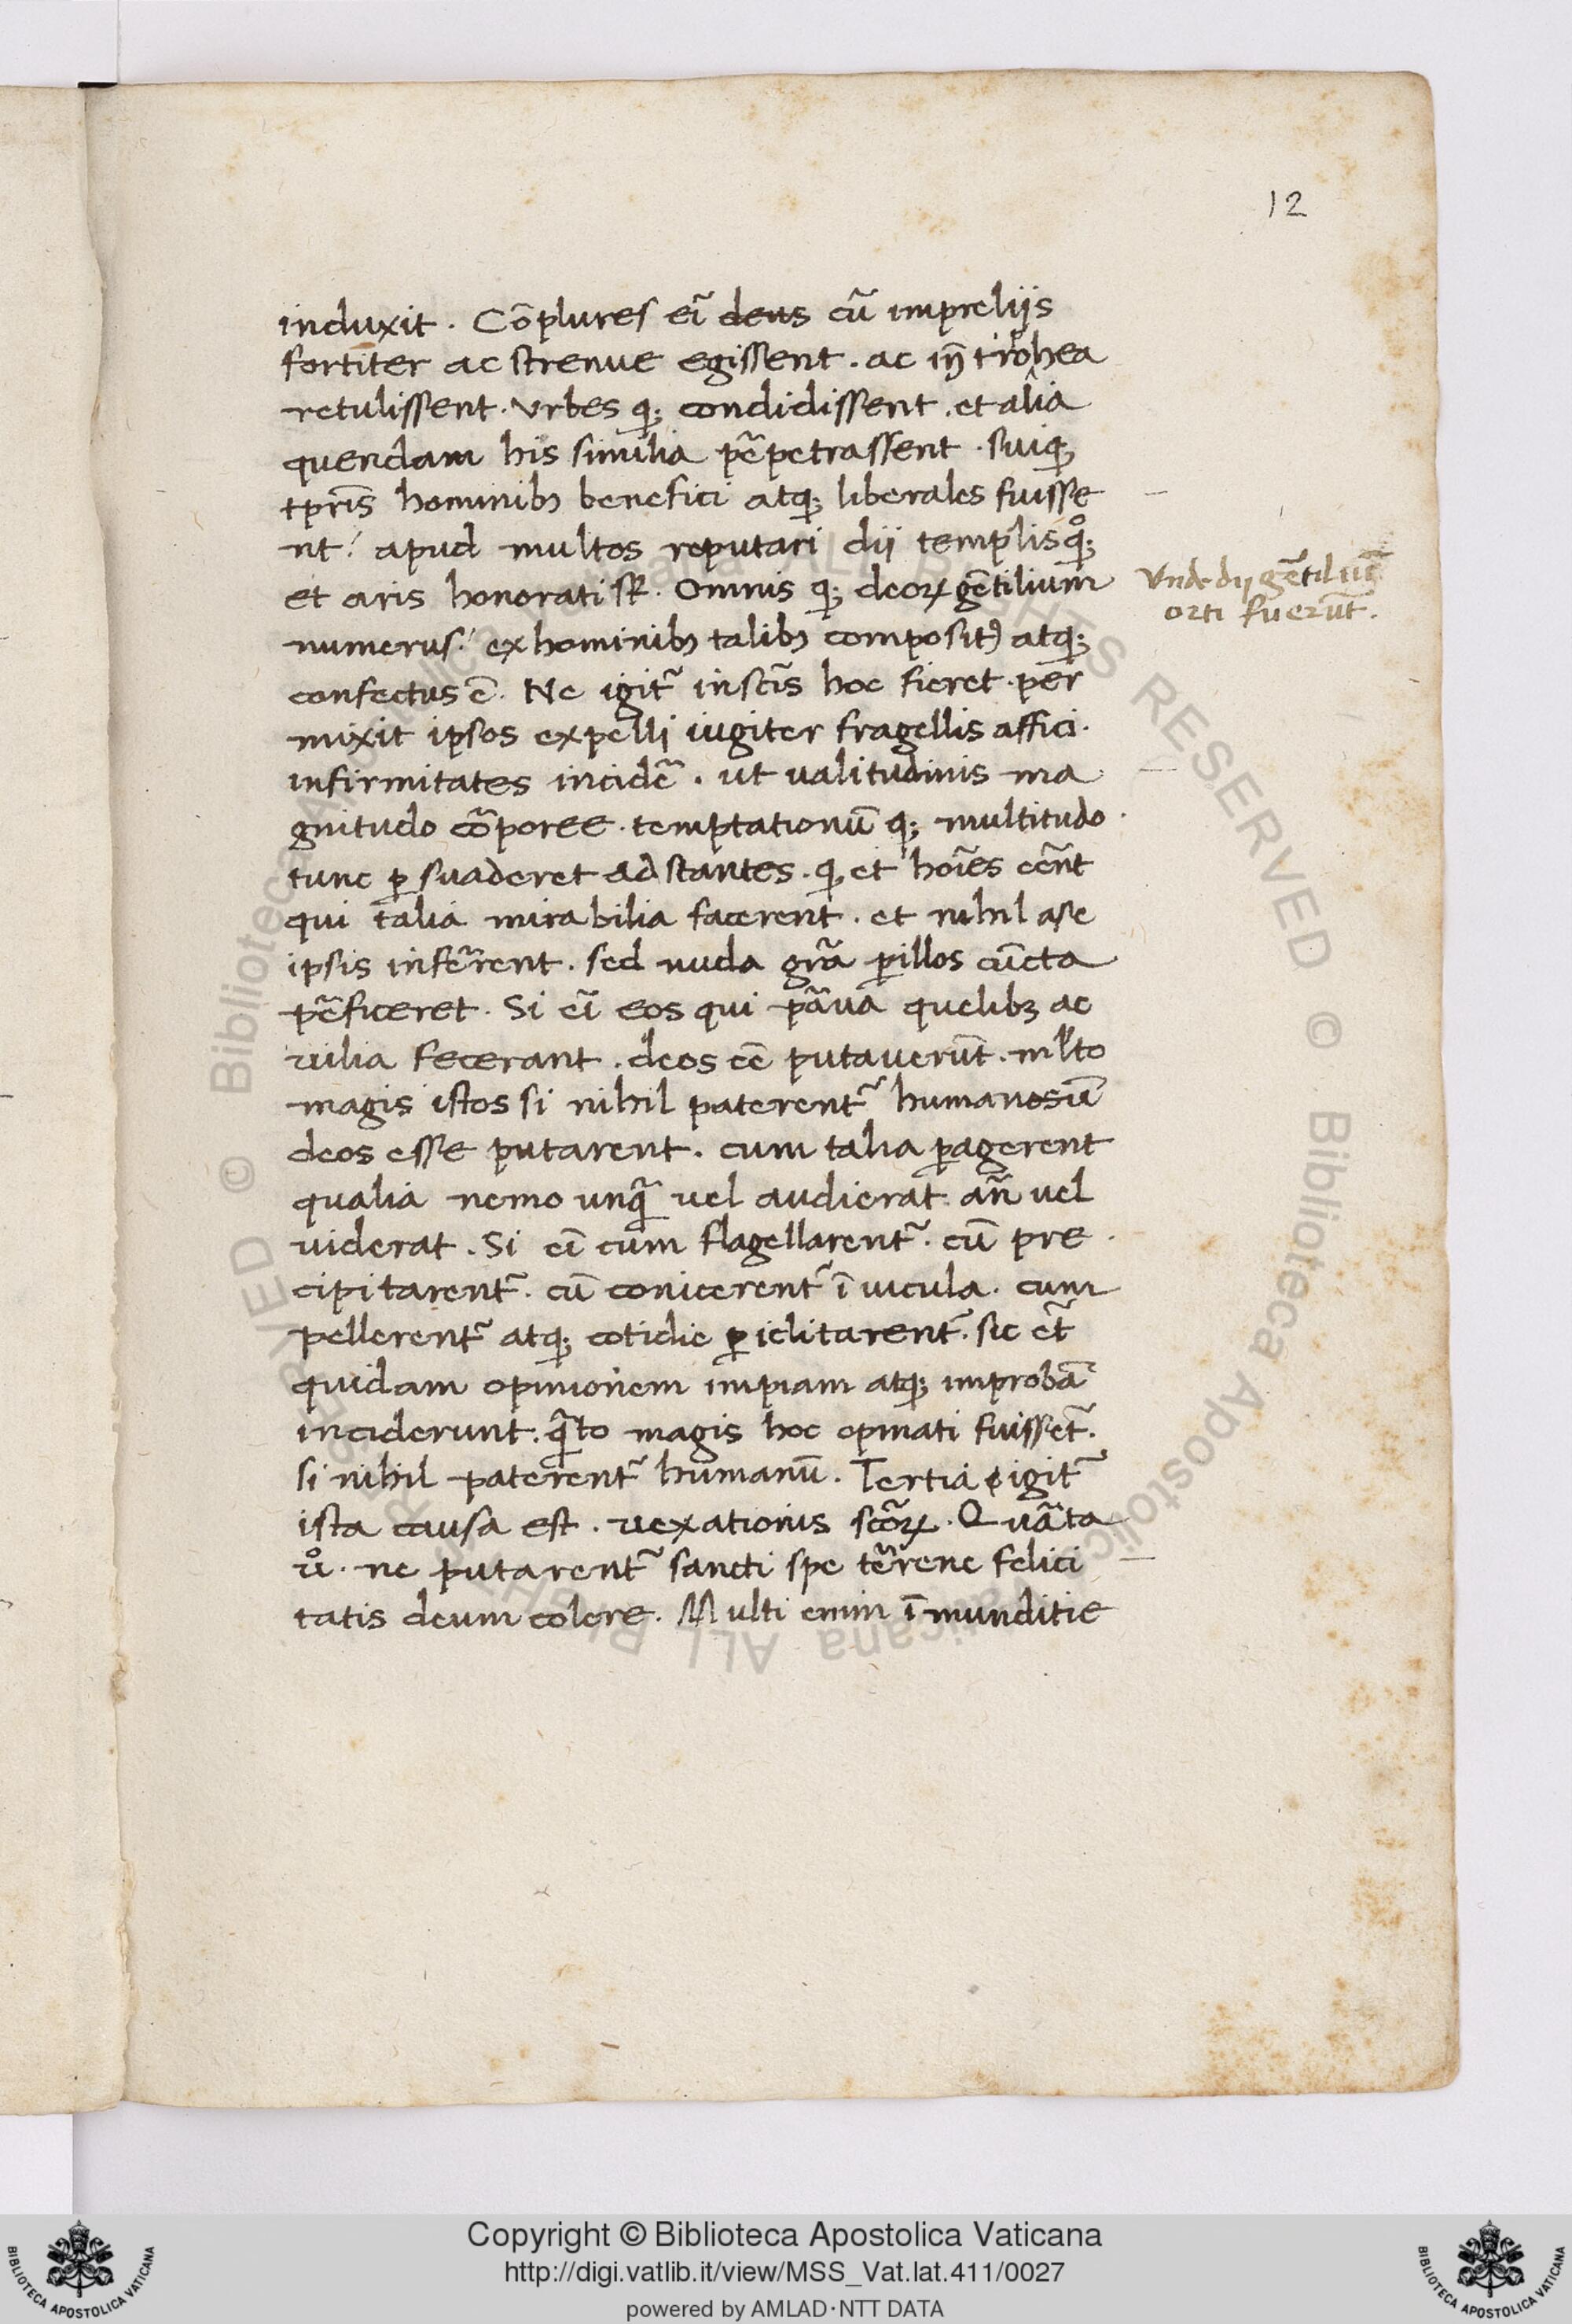 12
induxit. Cõplures eĩ deus cũ impreliis
fortiter ac strenue egissent. ac iñ trohea
retulissent. Vrbes q; condidissent. et alia
quendam his similia pẽpetrassent. suiq;
tpr̃is hominibꝫ benefici atq; liberales fuisse
nt? apud multos reputari dii templisq;
et aris honorati st̃. Omnis q; deoꝝ gẽtilium
numerus? ex hominibꝫ talibꝫ compositꝰ atq;
confectus ẽ. Ne igit̃ in sc̃tis hoc fieret. per
mixit ipsos expelli iugiter fragellis affici.
infirmitates incidẽ. ut valitudinis ma
gnitudo cõporee. temptationũ q; multitudo
tunc ꝑ suaderet adstantes. q; et hoĩes eẽnt
qui talia mirabilia facerent. et nihil a se
ipsis infẽrent. sed nuda grã ꝑ illos cũcta
pẽficeret. Si eĩ eos qui pãua quelibꝫ ac
vilia fecerant. deos eẽ putauerũt. ml̃to
magis istos si nihil paterent̃ humanosũ
deos esse putarent. cum talia ꝑagerent
qualia nemo unq̃ vel audierat añ vel
viderat. Si eĩ cum flagellarent̃. cũ pre
cipitarent̃. cũ conicerent̃ ĩ uĩcula. cum
pellerent̃ atq; cotidie ꝑ iclitarent̃. sic et̃
quidam opinionem impiam atq; improbã
inciderunt. q̃to magis hoc opinati fuissẽt.
si nihil paterent̃ humanũ. Tertia igit̃
ista causa est. vexationis scõꝝ. Quãta
uº. ne putarent̃ sancti spe tẽrene felici
tatis deum colere. Multi enim ĩ munditie
Vnde dij gẽtiliũ
orti fuerũt.
Copyright © Biblioteca Apostolica Vaticana
http://digi.vatlib.it/view/MSS_Vat.lat.411/0027
powered by AMLAD·NTT DATA
BIBLIOTECA APOSTOLICA VATICANA
BIBLIOTECA APOSTOLICA VATICANA
© Biblioteca Apostolica Vaticana ALL RIGHTS RESERVED © Biblioteca Apostolica Vaticana ALL RIGHTS RESERVED